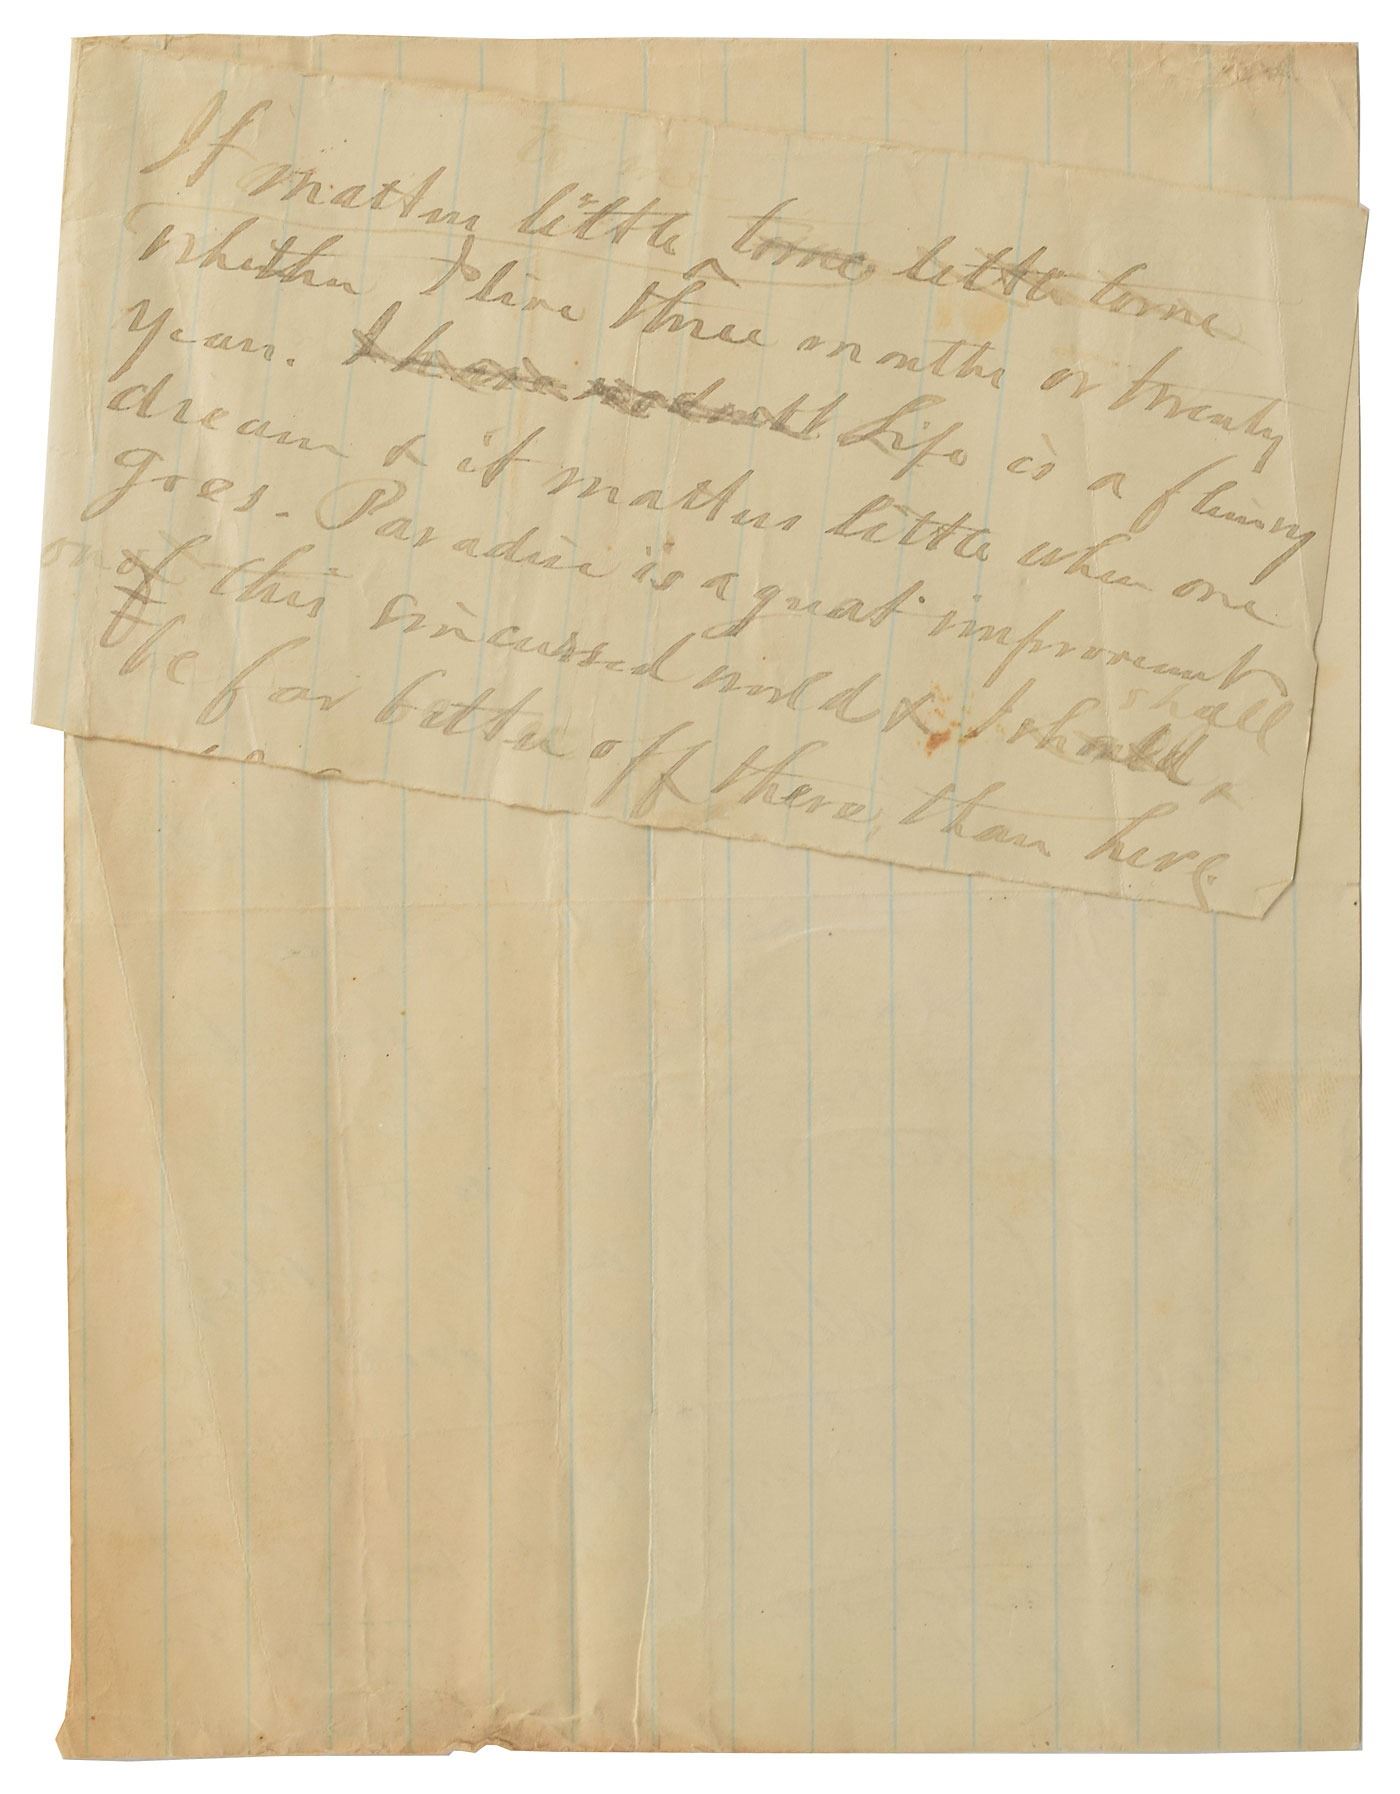 to me
It matters little to me little to me
whether I live three months or twenty
years. I have not Life is a flimsy
dream & it matters little when one
goes. Paradise is a great improvement
on of this sin cursed world & I should shall
be far better off there, than here.